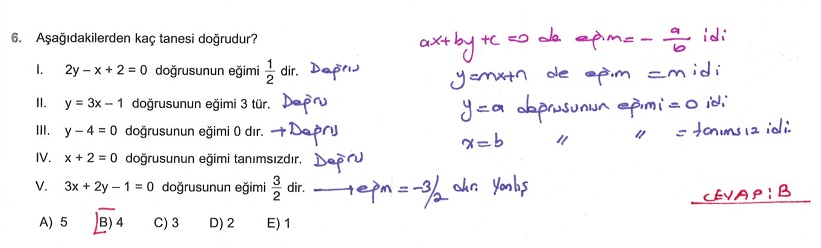 6. Aşağıdakilerden kaç tanesi doğrudur?
I. 2y – x + 2 = 0 doğrusunun eğimi 1/2 dir. Doğru
II. y = 3x – 1 doğrusunun eğimi 3 tür. Doğru
III. y – 4 = 0 doğrusunun eğimi 0 dır. → Doğru
IV. x + 2 = 0 doğrusunun eğimi tanımsızdır. Doğru
V. 3x + 2y – 1 = 0 doğrusunun eğimi 3/2 dir. → eğim = -3/2 olur Yanlış
A) 5 B) 4 C) 3 D) 2 E) 1
ax+by+c=0 da eğim= - a/b idi
y=mx+n de eğim =m idi
y=a doğrusunun eğimi=0 idi
x=b " " = tanımsız idi.
CEVAP: B